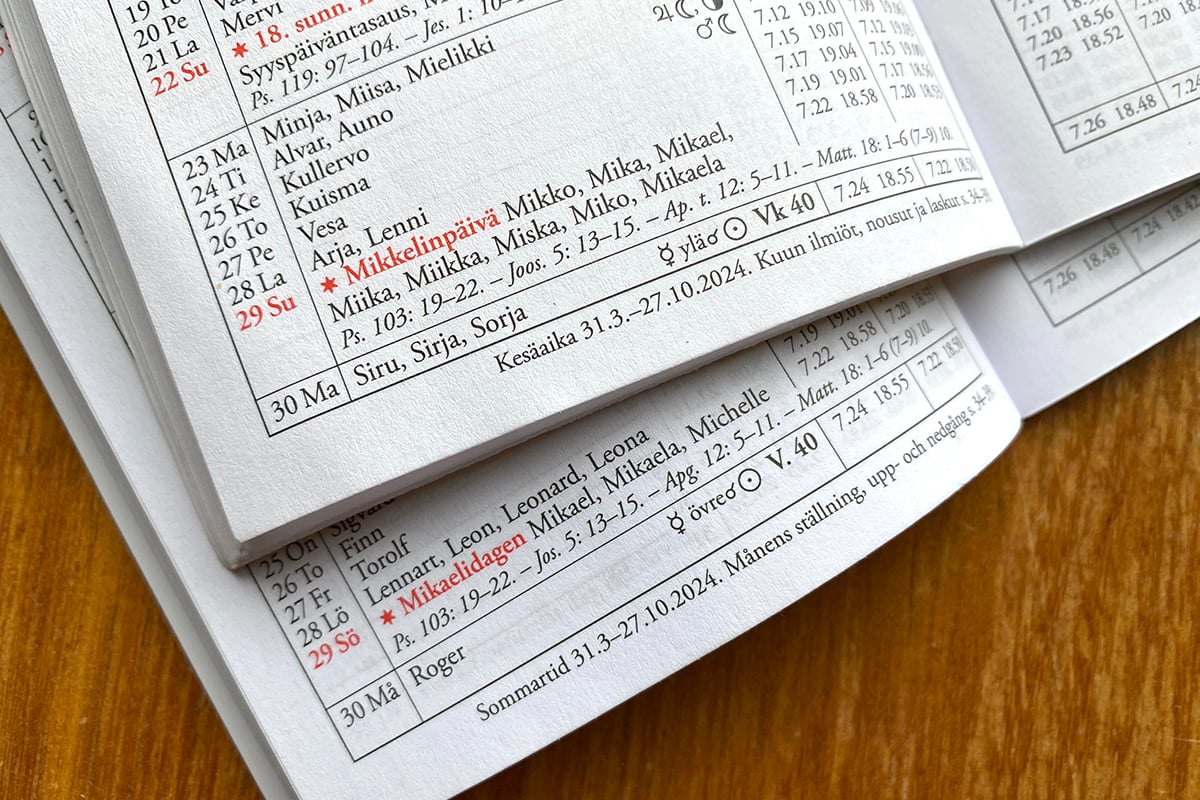 20 Pe Mervi
21 La ✶ 18. sunn.
22 Su Syyspäiväntasaus,
Ps. 119: 97–104. – Jes. 1: 10–
23 Ma Minja, Miisa, Mielikki
24 Ti Alvar, Auno
25 Ke Kullervo
26 To Kuisma
27 Pe Vesa
28 La Arja, Lenni
29 Su ✶ Mikkelinpäivä Mikko, Mika, Mikael,
Miika, Miikka, Miska, Miko, Mikaela
Ps. 103: 19–22. – Joos. 5: 13–15. – Ap. t. 12: 5–11. – Matt. 18: 1–6 (7–9) 10.
30 Ma Siru, Sirja, Sorja ☿ ylä☌☉ Vk 40 7.24 18.55 7.22 18.50
Kesäaika 31.3.–27.10.2024. Kuun ilmiöt, nousut ja laskut s. 34–39.
♃☾
♂☾
7.12 19.10
7.15 19.07 7.12
7.17 19.04 7.15
7.19 19.01 7.17 18.56
7.22 18.58 7.20 18.53
7.17
7.20 18.56
7.23 18.52 7.20
7.26 18.48 7.24
25 On
26 To Finn
27 Fr Torolf
28 Lö Lennart, Leon, Leonard, Leona
29 Sö ✶ Mikaelidagen Mikael, Mikaela, Michelle
Ps. 103: 19–22. – Jos. 5: 13–15. – Apg. 12: 5–11. – Matt. 18: 1–6 (7–9) 10.
30 Må Roger ☿ övre☌☉ V. 40 7.24 18.55 7.22 18.50
Sommartid 31.3–27.10.2024. Månens ställning, upp- och nedgång s. 34–39.
7.19 19.01
7.22 18.58 7.20
7.26 18.48 7.24